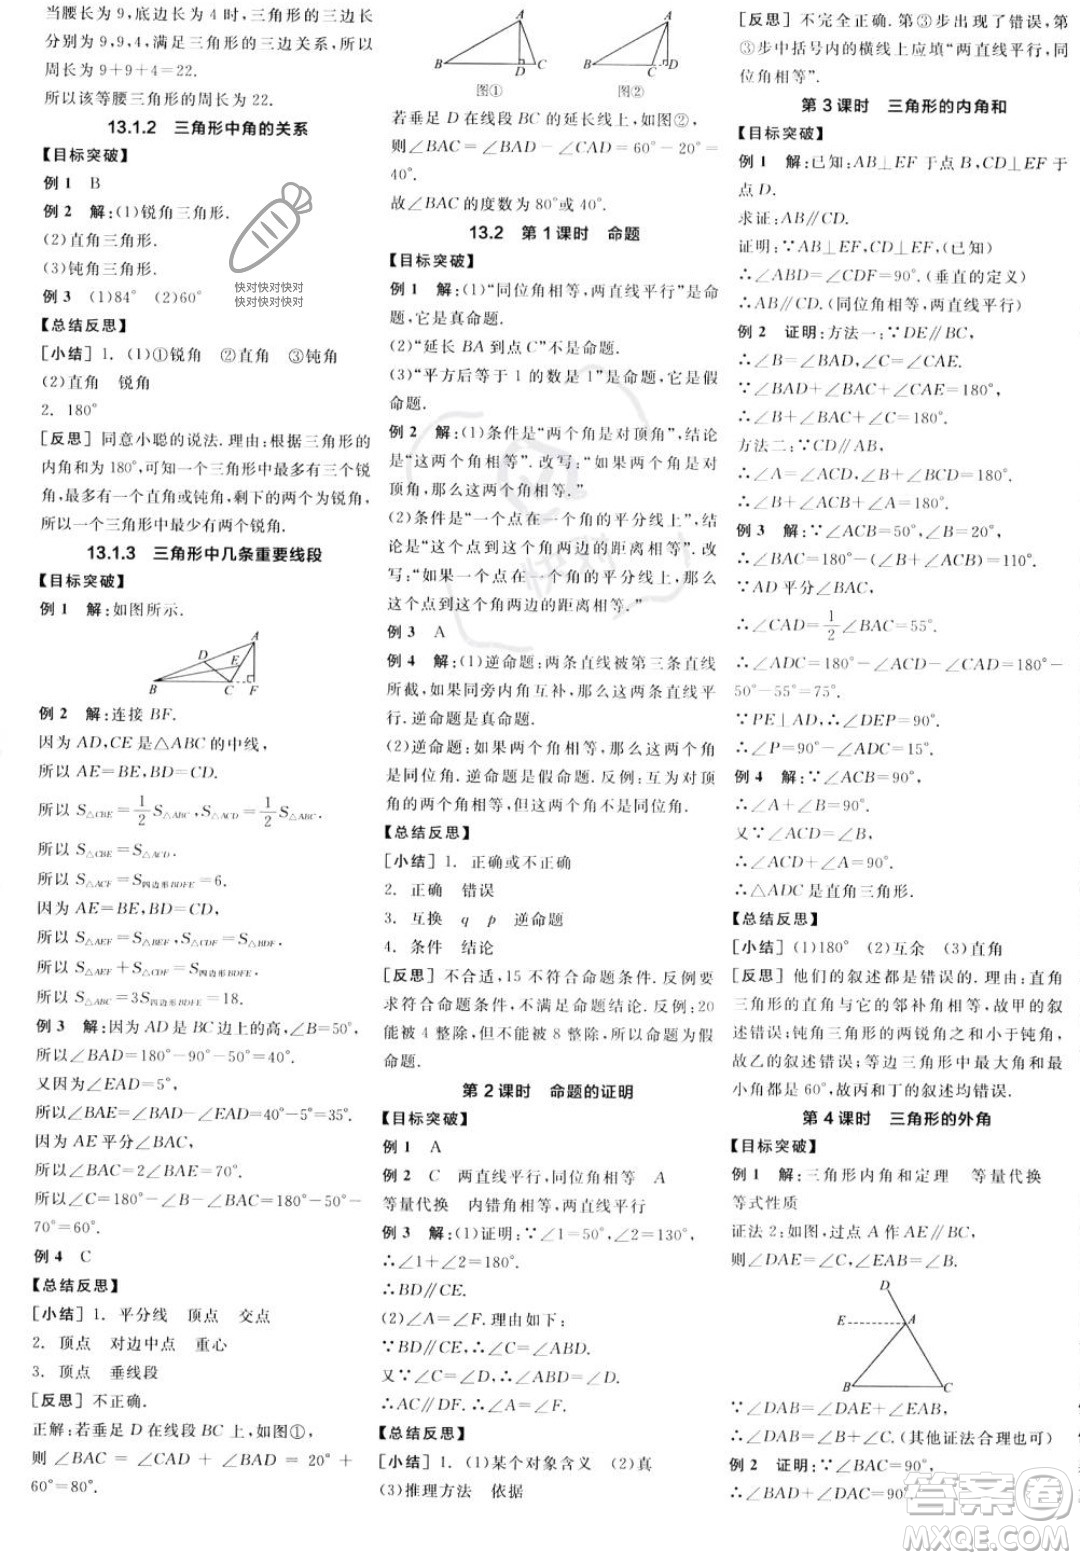 当腰长为 9，底边长为 4 时，三角形的三边长
分别为 9，9，4，满足三角形的三边关系，所以
周长为 9＋9＋4＝22.
所以该等腰三角形的周长为 22.
13.1.2 三角形中角的关系
【目标突破】
例 1 B
例 2 解：(1)锐角三角形.
(2)直角三角形.
(3)钝角三角形.
例 3 (1)84° (2)60°
【总结反思】
［小结］1. (1)①锐角 ②直角 ③钝角
(2)直角 锐角
2. 180°
［反思］同意小聪的说法.理由：根据三角形的
内角和为 180°，可知一个三角形中最多有三个锐
角，最多有一个直角或钝角，剩下的两个为锐角，
所以一个三角形中最少有两个锐角.
13.1.3 三角形中几条重要线段
【目标突破】
例 1 解：如图所示.
A
D
E
B
C F
例 2 解：连接 BF.
因为 AD，CE 是△ABC 的中线，
所以 AE＝BE，BD＝CD.
所以 S△CBE＝1/2 S△ABC，S△ACD＝1/2 S△ABC.
所以 S△CBE＝S△ACD.
所以 S△ACF＝S四边形BDFE＝6.
因为 AE＝BE，BD＝CD，
所以 S△AEF＝S△BEF，S△CDF＝S△BDF.
所以 S△AEF＋S△CDF＝S四边形BDFE.
所以 S△ABC＝3S四边形BDFE＝18.
例 3 解：因为 AD 是 BC 边上的高，∠B＝50°，
所以∠BAD＝180°－90°－50°＝40°.
又因为∠EAD＝5°，
所以∠BAE＝∠BAD－∠EAD＝40°－5°＝35°.
因为 AE 平分∠BAC，
所以∠BAC＝2∠BAE＝70°.
所以∠C＝180°－∠B－∠BAC＝180°－50°－
70°＝60°.
例 4 C
【总结反思】
［小结］1. 平分线 顶点 交点
2. 顶点 对边中点 重心
3. 顶点 垂线段
［反思］不正确.
正解：若垂足 D 在线段 BC 上，如图①，
则 ∠BAC＝∠BAD＋∠CAD＝20°＋
60°＝80°.
A A
B D C B C D
图① 图②
若垂足 D 在线段 BC 的延长线上，如图②，
则∠BAC＝∠BAD－∠CAD＝60°－20°＝
40°.
故∠BAC 的度数为 80°或 40°.
13.2 第 1 课时 命题
【目标突破】
例 1 解：(1)“同位角相等，两直线平行”是命
题，它是真命题.
(2)“延长 BA 到点 C”不是命题.
(3)“平方后等于 1 的数是 1”是命题，它是假
命题.
例 2 解：(1)条件是“两个角是对顶角”，结论
是“这两个角相等”. 改写：“如果两个角是对
顶角，那么这两个角相等.”
(2)条件是“一个点在一个角的平分线上”，
结论是“这个点到这个角两边的距离相等”. 改
写：“如果一个点在一个角的平分线上，那么
这个点到这个角两边的距离相等.”
例 3 A
例 4 解：(1)逆命题：两条直线被第三条直线
所截，如果同旁内角互补，那么这两条直线平
行. 逆命题是真命题.
(2)逆命题：如果两个角相等，那么这两个角
是同位角. 逆命题是假命题. 反例：互为对顶
角的两个角相等，但这两个角不是同位角.
【总结反思】
［小结］1. 正确或不正确
2. 正确 错误
3. 互换 q p 逆命题
4. 条件 结论
［反思］不合适，15 不符合命题条件. 反例要
求符合命题条件，不满足命题结论. 反例：20
能被 4 整除，但不能被 8 整除，所以命题为假
命题.
第 2 课时 命题的证明
【目标突破】
例 1 A
例 2 C 两直线平行，同位角相等 A
等量代换 内错角相等，两直线平行
例 3 解：(1)证明：∵∠1＝50°，∠2＝130°，
∴∠1＋∠2＝180°.
∴BD∥CE.
(2)∠A＝∠F. 理由如下：
∵BD∥CE，∴∠C＝∠ABD.
又∵∠C＝∠D，∴∠ABD＝∠D.
∴AC∥DF. ∴∠A＝∠F.
【总结反思】
［小结］1. (1)某个对象含义 (2)真
(3)推理方法 依据
［反思］不完全正确. 第③步出现了错误，第
③步中括号内的横线上应填“两直线平行，同
位角相等”.
第 3 课时 三角形的内角和
【目标突破】
例 1 解：已知：AB⊥EF 于点 B，CD⊥EF 于
点 D.
求证：AB∥CD.
证明：∵AB⊥EF，CD⊥EF，(已知)
∴∠ABD＝∠CDF＝90°. (垂直的定义)
∴AB∥CD. (同位角相等，两直线平行)
例 2 证明：方法一：∵DE∥BC，
∴∠B＝∠BAD，∠C＝∠CAE.
∵∠BAD＋∠BAC＋∠CAE＝180°，
∴∠B＋∠BAC＋∠C＝180°.
方法二：∵CD∥AB，
∴∠A＝∠ACD，∠B＋∠BCD＝180°.
∴∠B＋∠ACB＋∠A＝180°.
例 3 解：∵∠ACB＝50°，∠B＝20°，
∴∠BAC＝180°－∠ACB－∠B＝110°.
∵AD 平分∠BAC，
∴∠CAD＝1/2∠BAC＝55°.
∴∠ADC＝180°－∠ACB－∠CAD＝180°－
50°－55°＝75°.
∵PE⊥AD，∴∠DEP＝90°.
∴∠P＝90°－∠ADC＝15°.
例 4 解：∵∠ACB＝90°，
∴∠A＋∠B＝90°.
又∵∠ACD＝∠B，
∴∠ACD＋∠A＝90°.
∴△ADC 是直角三角形.
【总结反思】
［小结］(1)180° (2)互余 (3)直角
［反思］他们的叙述都是错误的. 理由：直角
三角形的直角与它的邻补角相等，故甲的叙
述错误；钝角三角形的两锐角之和小于钝角，
故乙的叙述错误；等边三角形中最大角和最
小角都是 60°，故丙和丁的叙述均错误.
第 4 课时 三角形的外角
【目标突破】
例 1 解：三角形内角和定理 等量代换
等式性质
证法 2：如图，过点 A 作 AE∥BC，
则∠DAE＝∠C，∠EAB＝∠B.
D
E A
B C
∵∠DAB＝∠DAE＋∠EAB，
∴∠DAB＝∠B＋∠C. (其他证法合理即可)
例 2 证明：∵∠BAC＝90°，
∴∠BAD＋∠DAC＝90°.
快对快对快对
快对快对快对
快对
答案圈
MXQE.COM